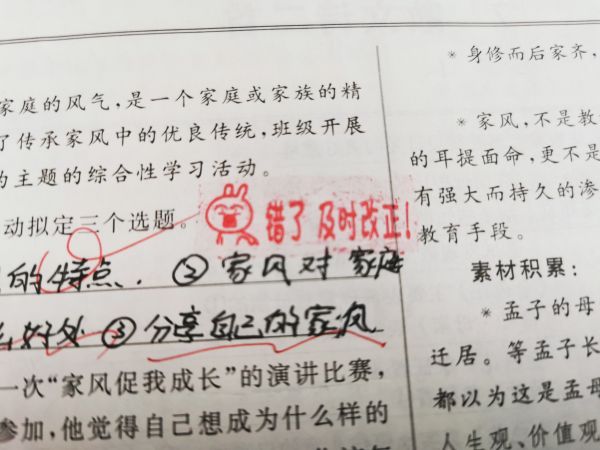 家庭的风气,是一个家庭或家族的精
了传承家风中的优良传统,班级开展
为主题的综合性学习活动。
动拟定三个选题。
错了 及时改正!
的特点. ②家风对家庭
好处 ③分享自己的家风
一次“家风促我成长”的演讲比赛,
参加,他觉得自己想成为什么样的
* 身修而后家齐,
* 家风,不是教
的耳提面命,更不是
有强大而持久的渗
教育手段。
素材积累:
* 孟子的母
迁居。等孟子长
都以为这是孟母
人生观、价值观